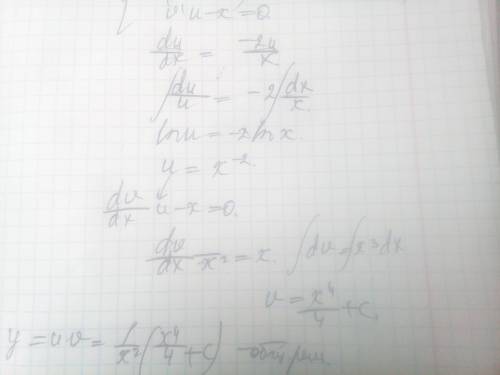 { v'u-x=0.
du/dx = -2u/x
∫du/u = -2∫dx/x
ln u = -2 ln x.
u = x^-2
dv/dx u-x=0.
dv/dx x^-2 = x. ∫dv=∫x^3dx
v = x^4/4 + C,
y = u·v = 1/x^2 (x^4/4 + C) - общ реш